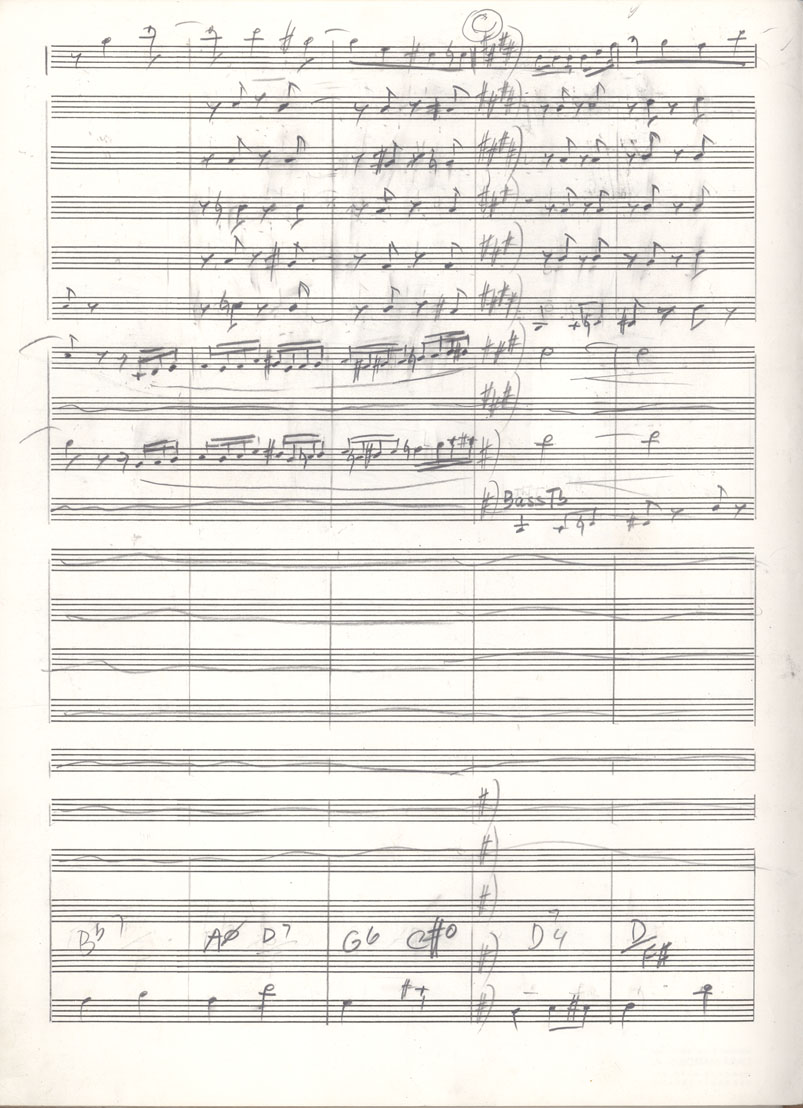 C
Bass Tb
Bb7 AØ D7 G6 C#o D74 D/F#